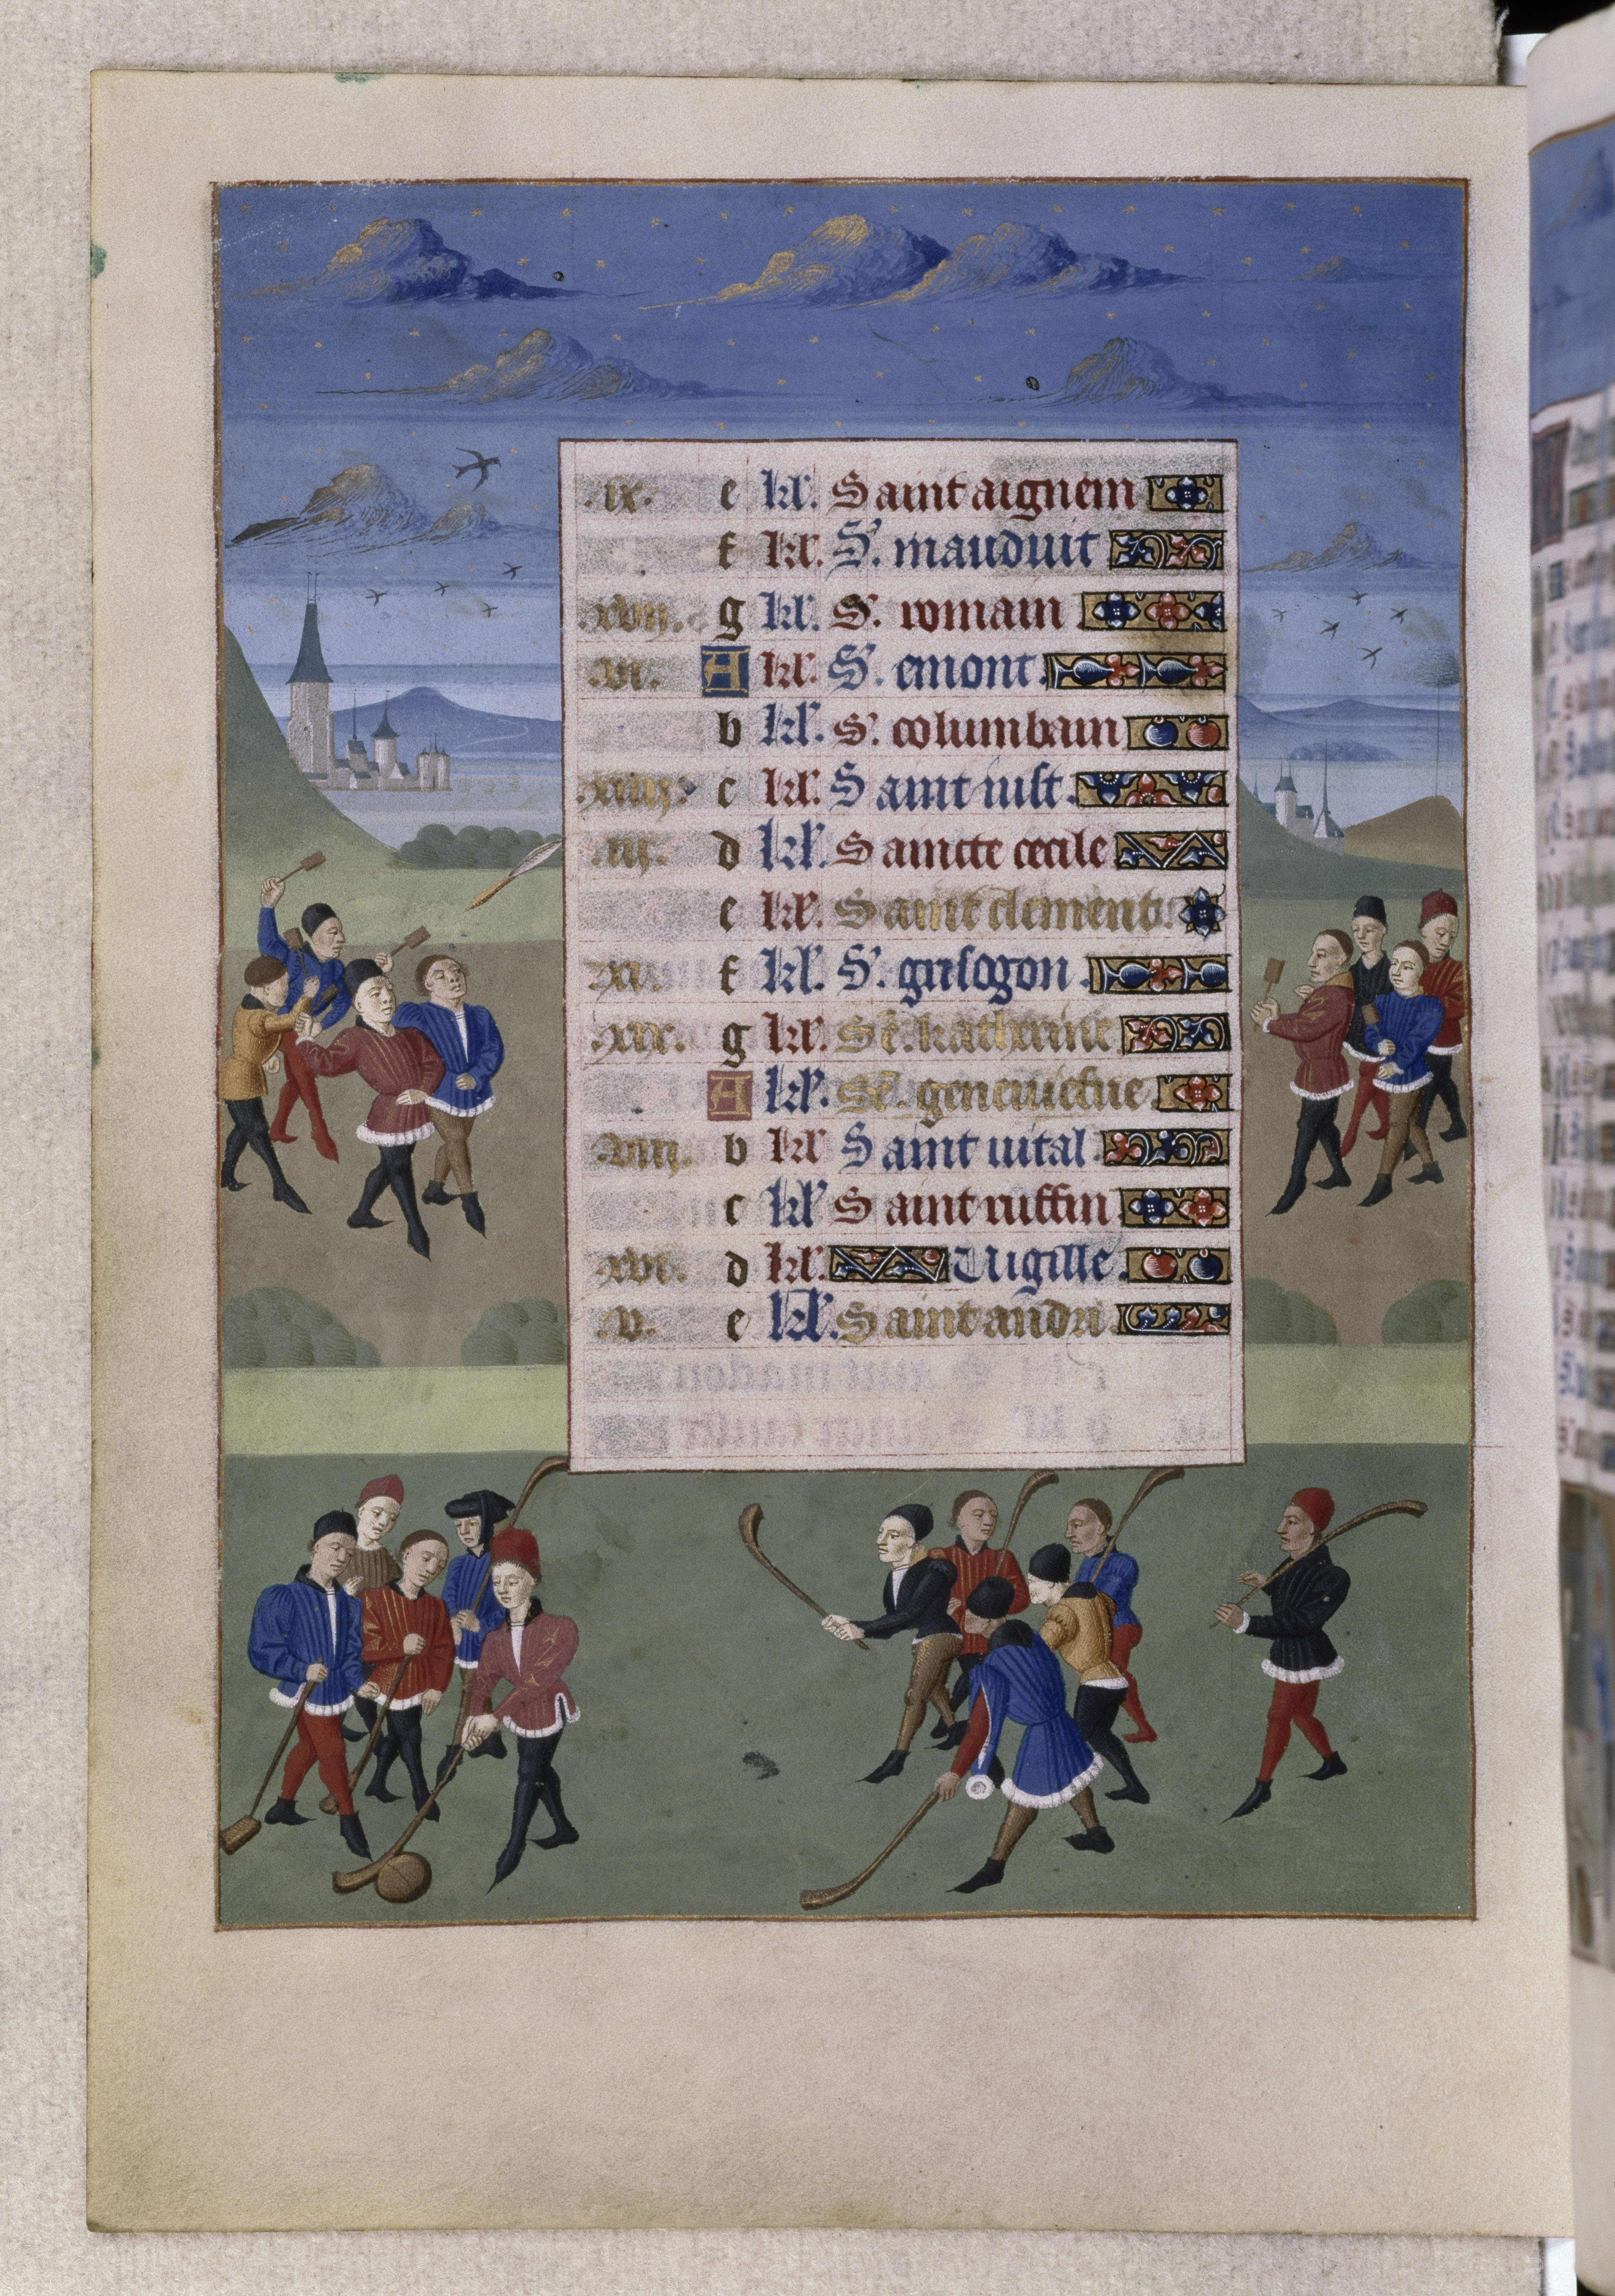 .ix. e kl'. Saint aignem
f kl'. S'. mauduit
.xvii. g kl'. S'. romain
.vi. A kl'. S'. emont.
b kl'. S'. columbain
.xiiii. c kl'. Saint iust.
.iii. d kl'. Saincte cecile
e kl'. Saint clement.
.xi. f kl'. S'. grisogon.
.xix. g kl'. Se. katherine
A kl'. Se. geneuiefue
.viii. b kl' Saint uital.
c kl' Saint ruffin
.xvi. d kl'. Uigille.
.v. e kl'. Saint andri.